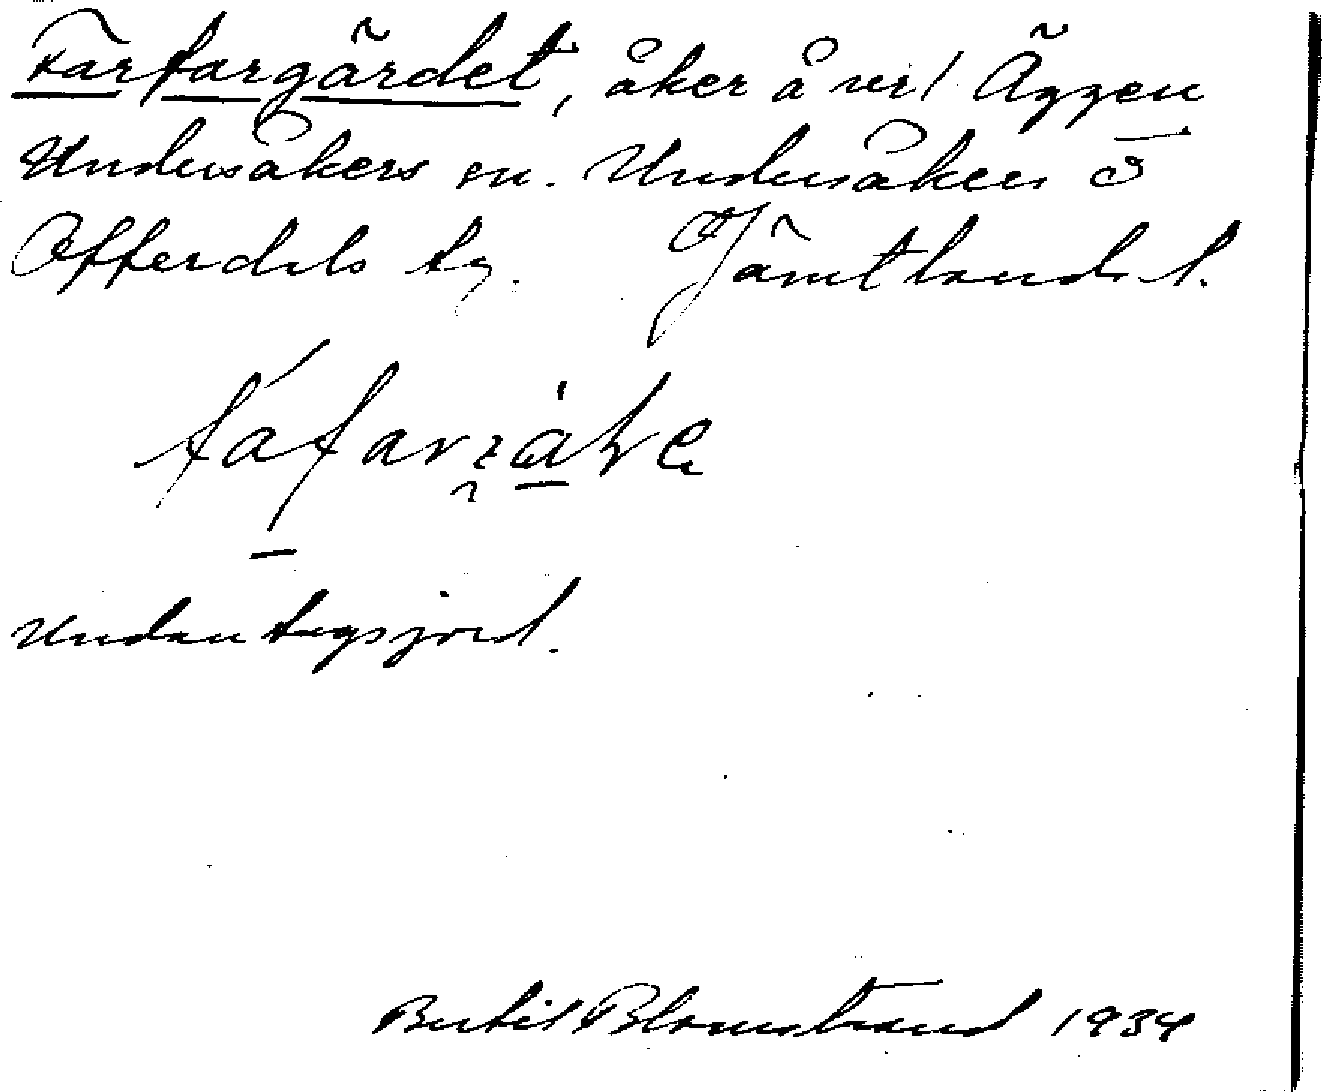 Farfargärdet, åker å vid Äggen
Undersåkers sn. Undersåkers o
Offerdals tg. Jämtlands l.
Undantagsjord.
Bertil Blomstrand 1934